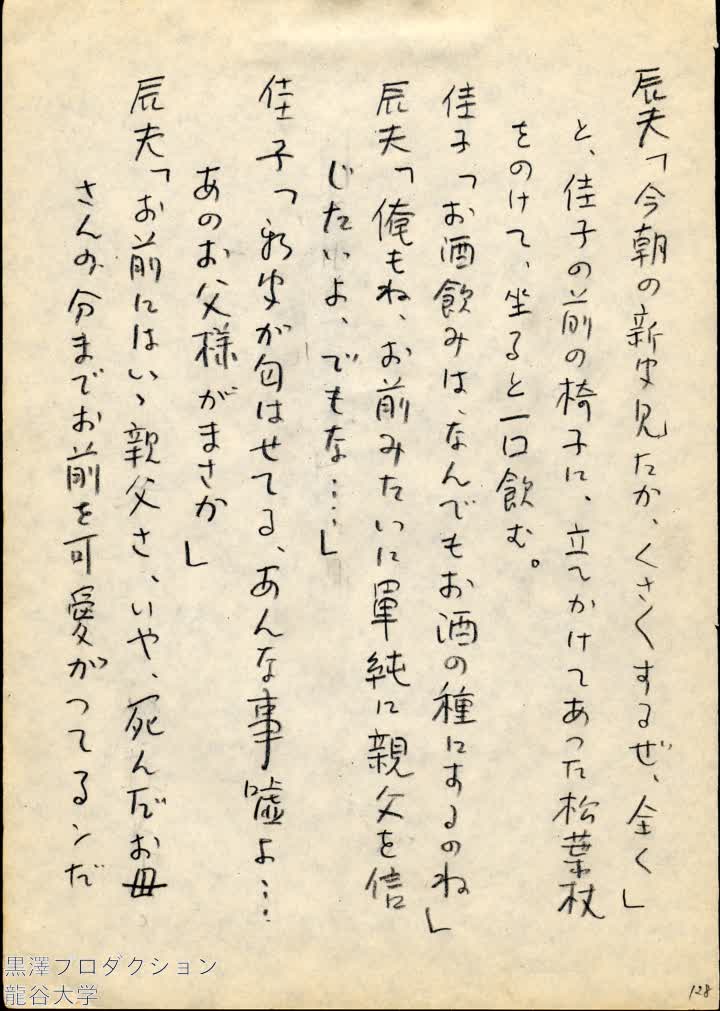 辰夫「今朝の新史見たか、くさくするぜ、全く」
と、佳子の前の椅子に、立てかけてあった松葉杖
をのけて、坐ると一口飲む。
佳子「お酒飲みは、なんでもお酒の種にするのね」
辰夫「俺もね、お前みたいに單純に親父を信
じたいよ、でもな……」
佳子「新史が匂はせてる、あんな事嘘よ…
あのお父様がまさか」
辰夫「お前にはいゝ親父さ、いや、死んだお母
さんの分までお前を可愛がつてるンだ
128
黒澤プロダクション
龍谷大学